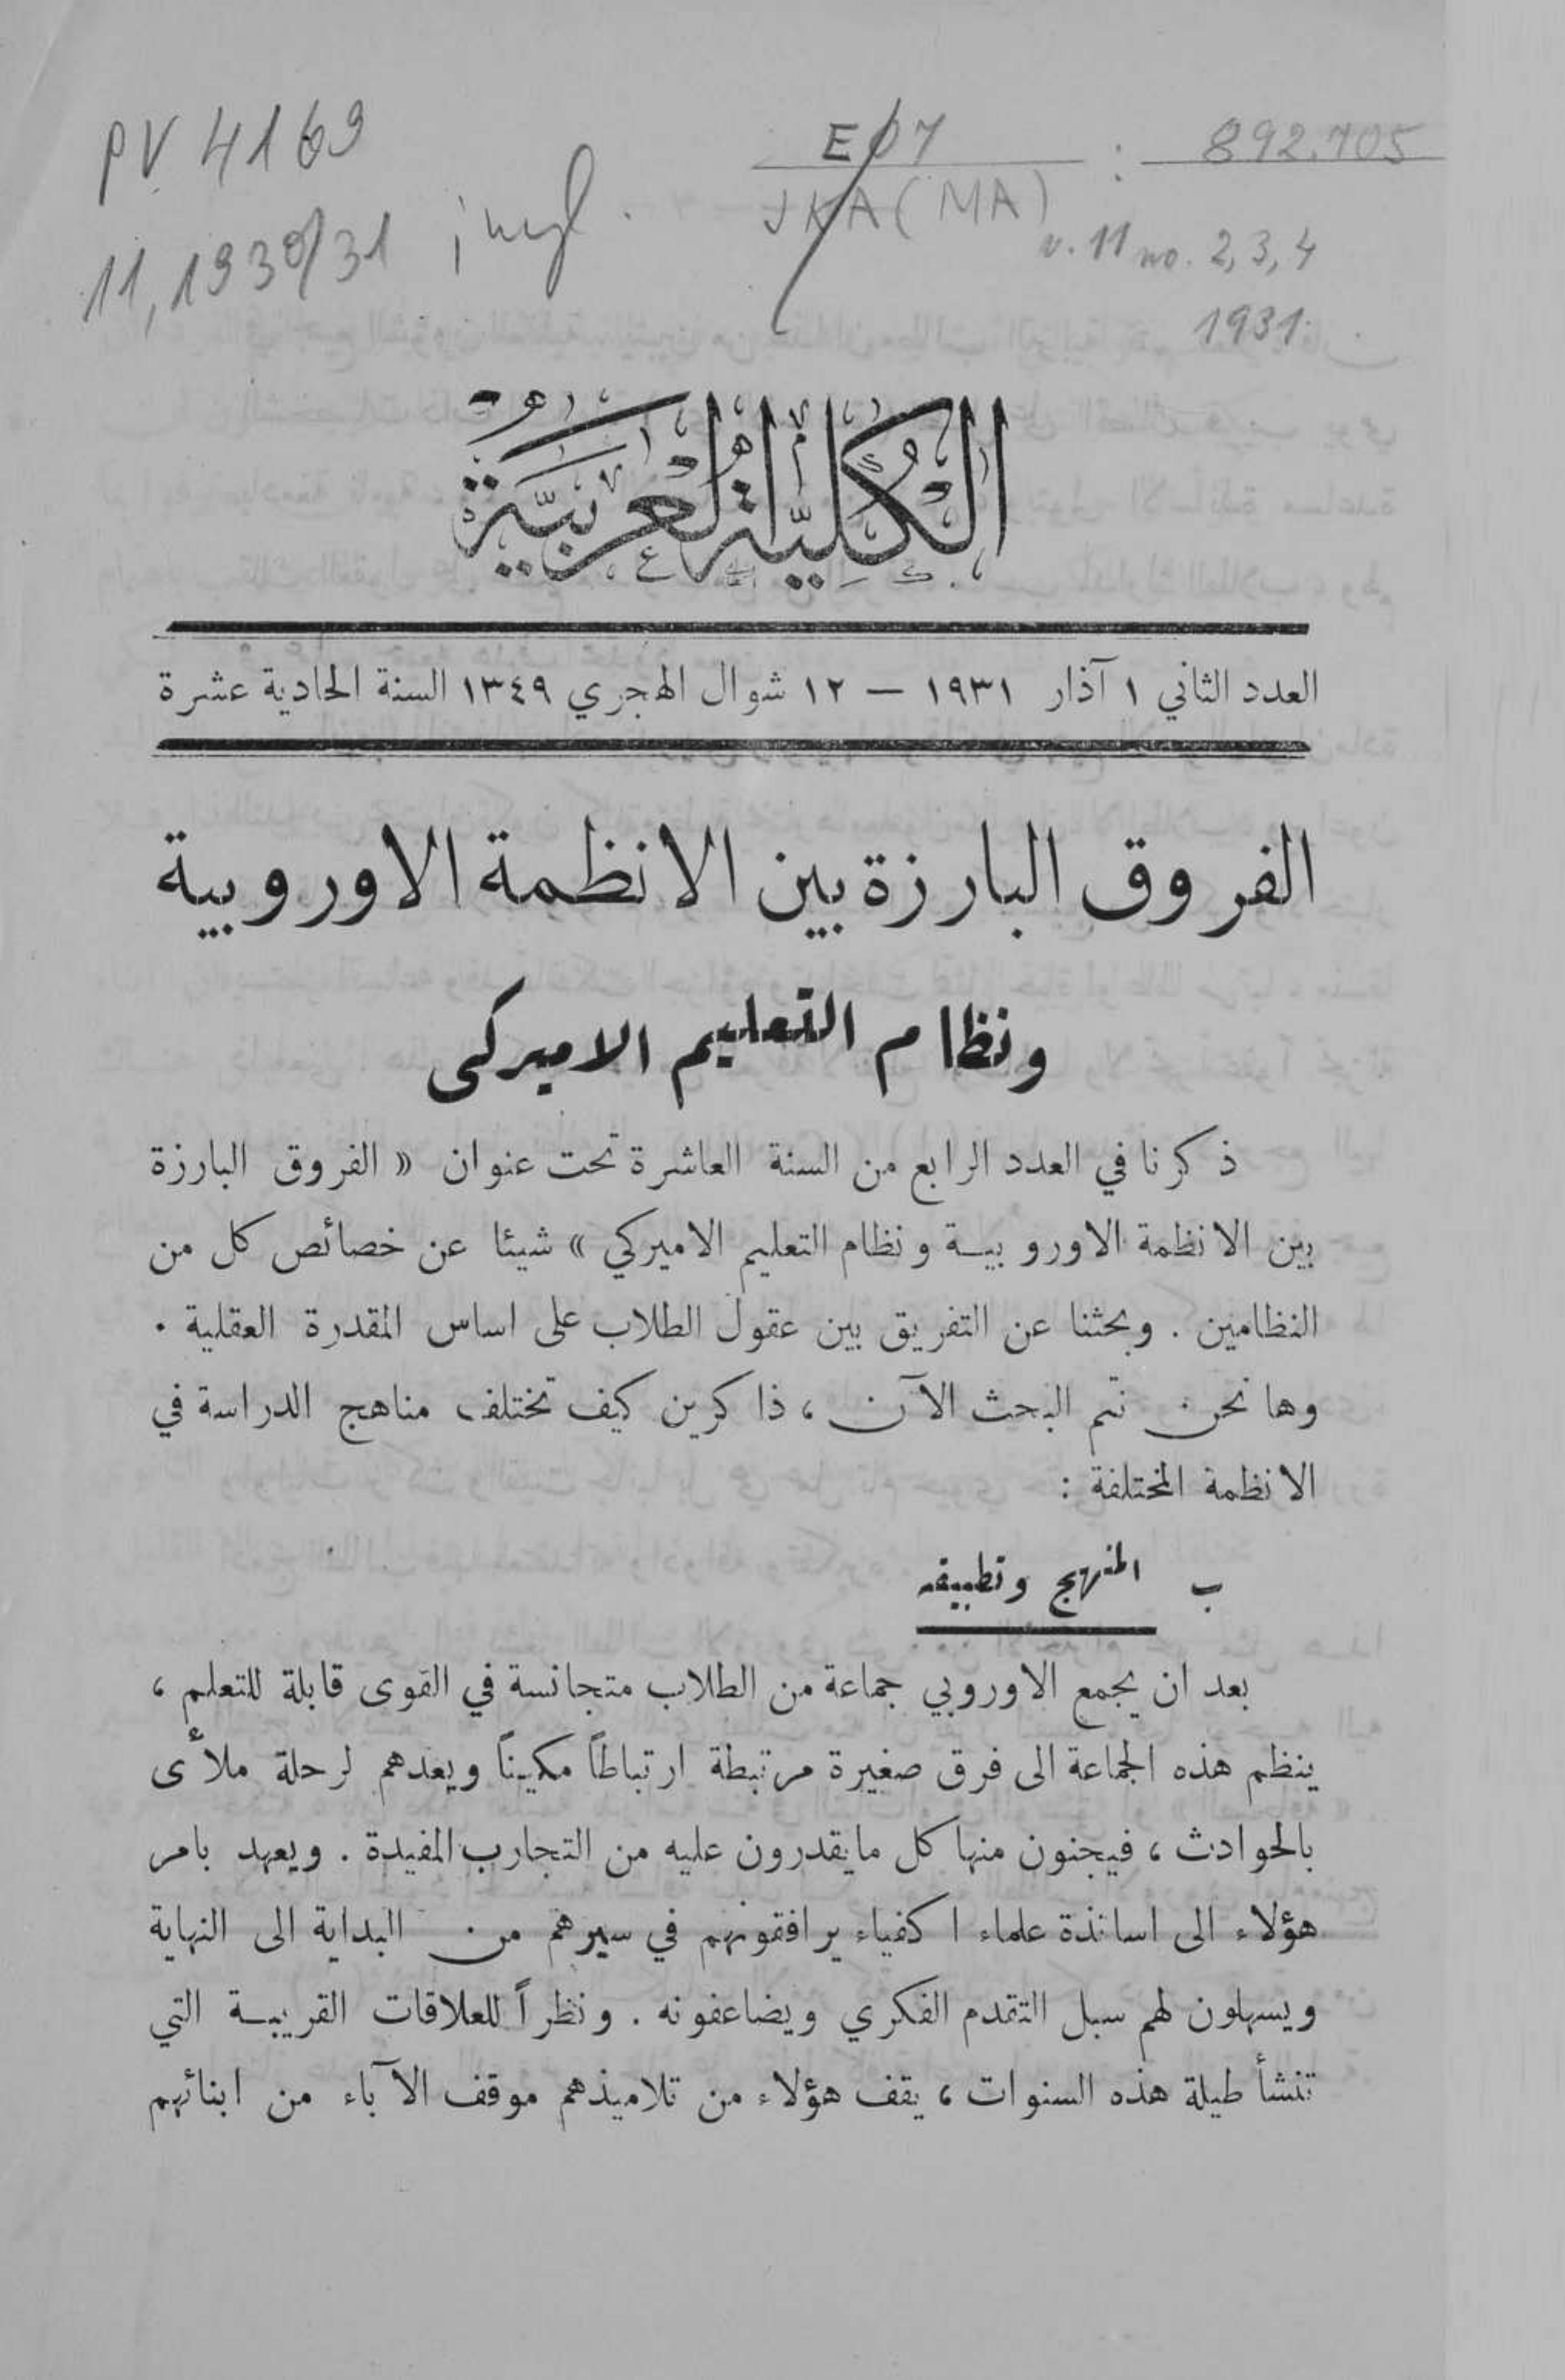 PV 4169
11, 1930/31
E07 : 892.705
JKA (MA)
v. 11 no. 2, 3, 4
1931
الكلية العربية
العدد الثاني ١ آذار ١٩٣١ — ١٢ شوال الهجري ١٣٤٩ السنة الحادية عشرة
الفروق البارزة بين الانظمة الاوروبية
ونظام التعليم الاميركي
ذكرنا في العدد الرابع من السنة العاشرة تحت عنوان « الفروق البارزة
بين الانظمة الاوروبية ونظام التعليم الاميركي » شيئا عن خصائص كل من
النظامين . وبحثنا عن التفريق بين عقول الطلاب على اساس المقدرة العقلية .
وها نحن نتم البحث الآن ، ذاكرين كيف تختلف مناهج الدراسة في
الانظمة المختلفة :
ب المنهج وتطبيقه
بعد ان يجمع الاوروبي جماعة من الطلاب متجانسة في القوى قابلة للتعلم ،
ينظم هذه الجماعة الى فرق صغيرة مرتبطة ارتباطاً مكيناً ويعدهم لرحلة ملأى
بالحوادث ، فيجنون منها كل ما يقدرون عليه من التجارب المفيدة . ويعهد بامر
هؤلاء الى اساتذة علماء اكفياء يرافقونهم في سيرهم من البداية الى النهاية
ويسهلون لهم سبل التقدم الفكري ويضاعفونه . ونظراً للعلاقات القريبة التي
تنشأ طيلة هذه السنوات ، يقف هؤلاء من تلاميذهم موقف الآباء من ابنائهم